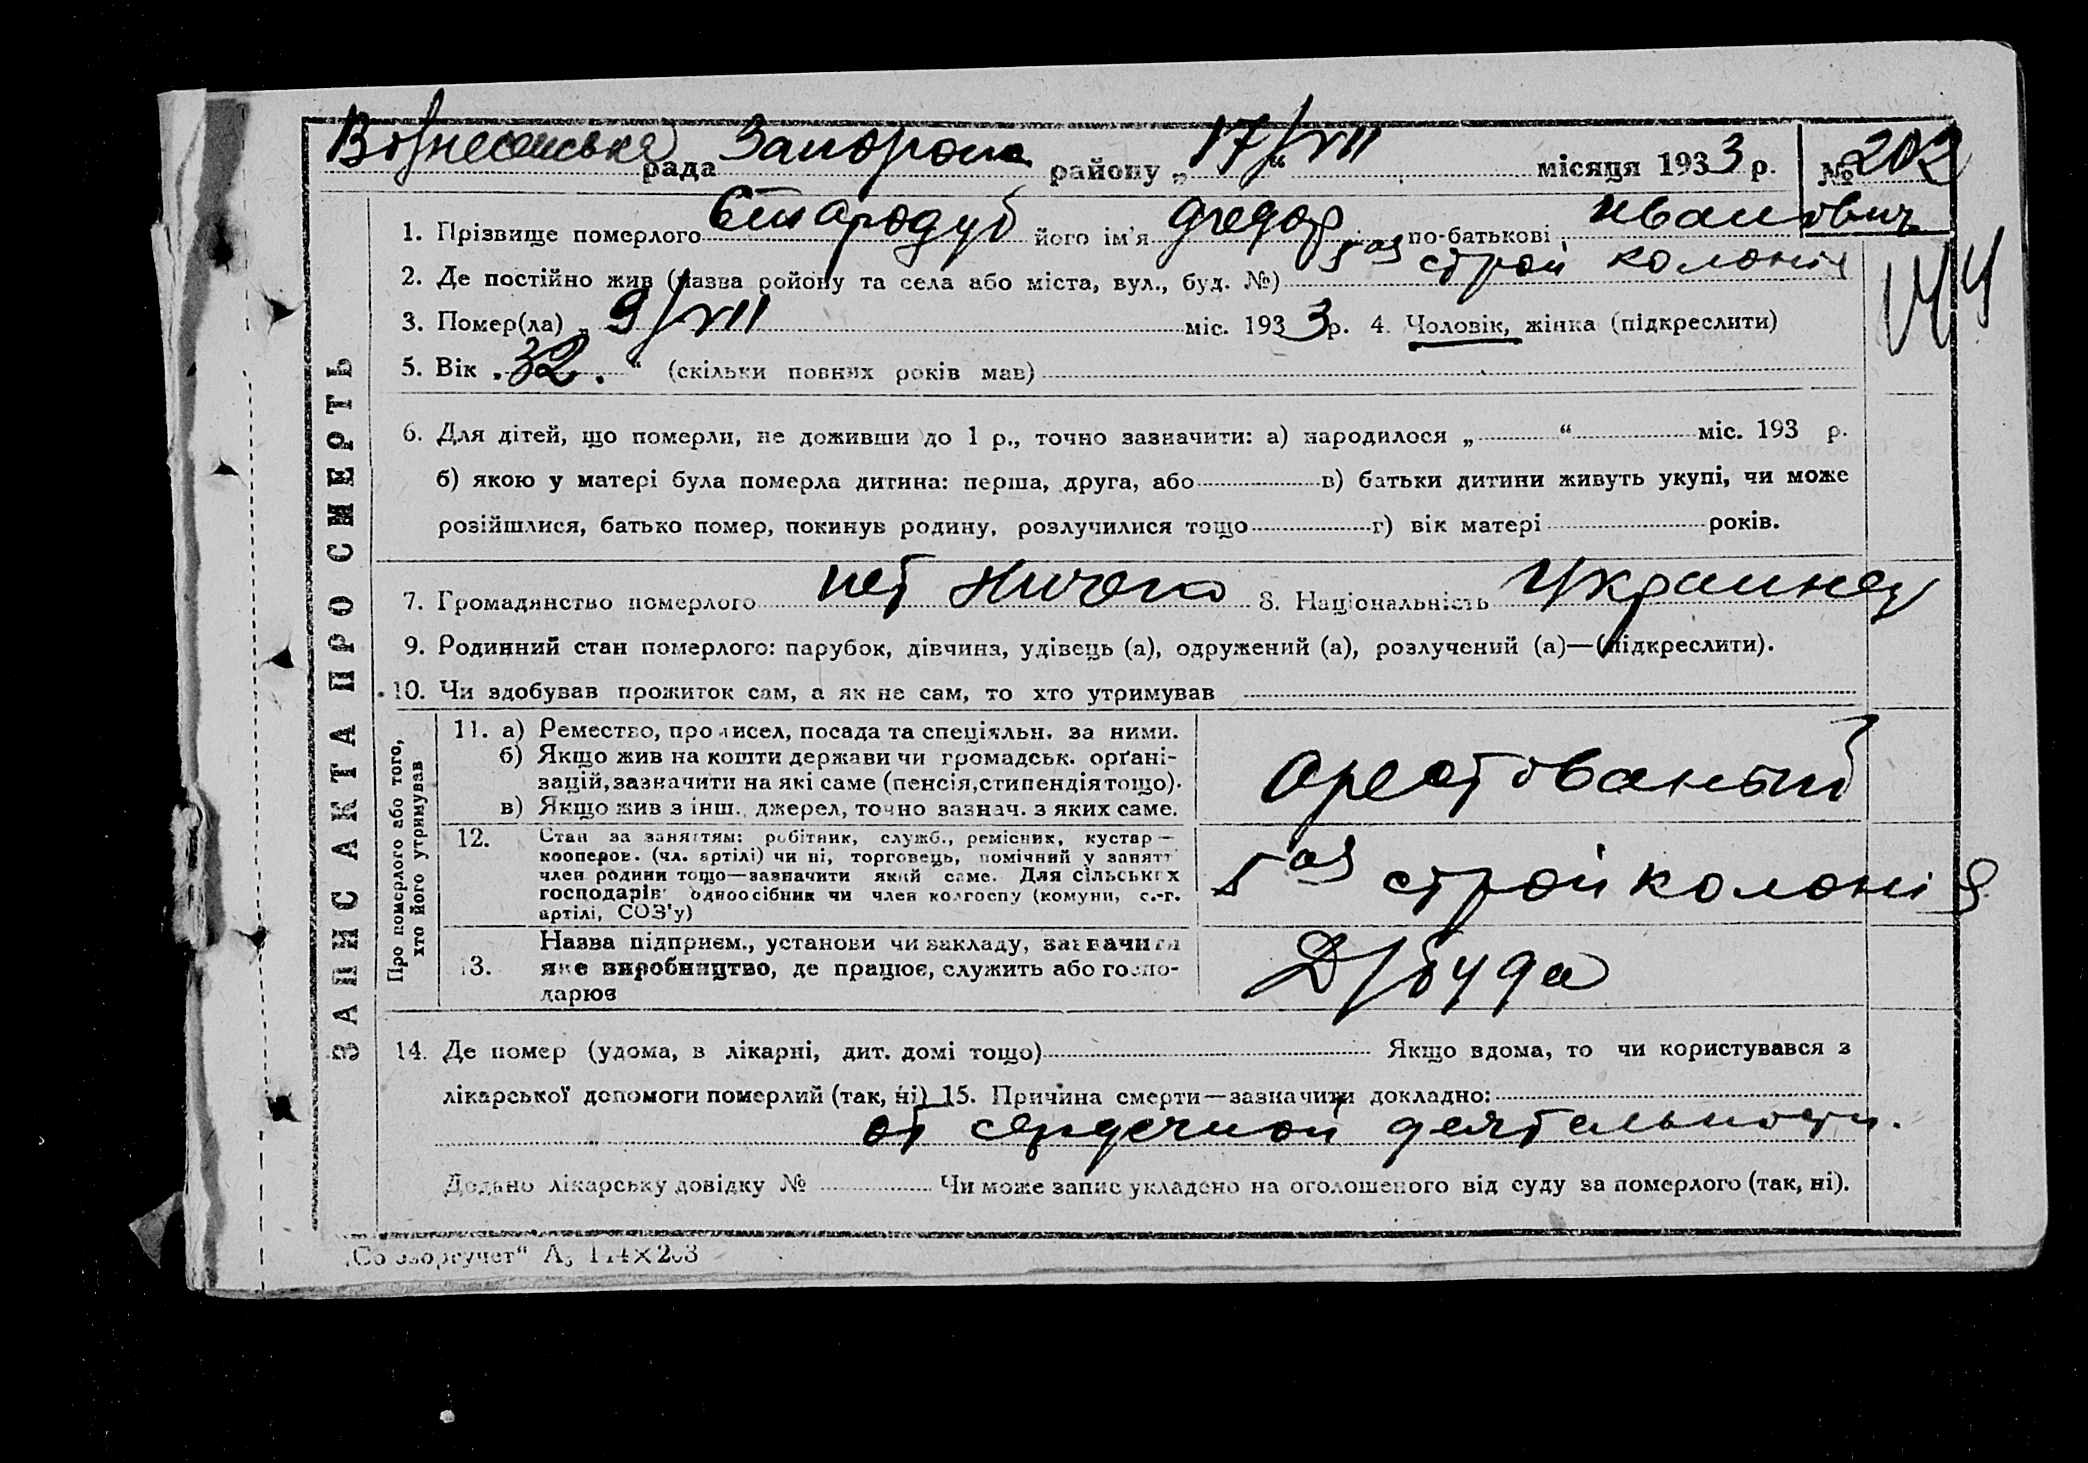 Вознесенська рада Запорожс району „17/VII“ місяця 1933 р. № 202
1. Прізвище померлого Стародуб його ім'я Федор по-батькові Иванович
2. Де постійно жив (назва ройону та села або міста, вул., буд. №) 5ая строй колонія
144
3. Помер(ла) „ 9/VII міс. 1933 р. 4. Чоловік, жінка (підкреслити)
5. Вік „32.“ (скільки повних років мав)
6. Для дітей, що померли, не доживши до 1 р., точно зазначити: а) народилося „ “ міс. 193 р.
б) якою у матері була померла дитина: перша, друга, або в) батьки дитини живуть укупі, чи може
розійшлися, батько помер, покинув родину, розлучилися тощо г) вік матері років.
7. Громадянство померлого нет ничего 8. Національність Украинец
9. Родинний стан померлого: парубок, дівчина, удівець (а), одружений (а), розлучений (а)—(підкреслити).
10. Чи здобував прожиток сам, а як не сам, то хто утримував
ЗАПИС АКТА ПРО СМЕРТЬ
Про померлого або того, хто його утримував
11. а) Ремество, промисел, посада та спеціяльн. за ними.
б) Якщо жив на кошти держави чи громадськ. орґані-
зацій, зазначити на які саме (пенсія, стипендія тощо).
в) Якщо жив з інш. джерел, точно зазнач. з яких саме.
Орестованый
12. Стан за заняттям: робітник, служб., ремісник, кустар—
кооперов. (чл. артілі) чи ні, торговець, помічний у занятт
член родини тощо—зазначити який саме. Для сільських
господарів: одноосібник чи член колгоспу (комуни, с.-г.
артілі, СОЗ'у)
5ая строй колонія
13. Назва підприєм., установи чи закладу, зазначити
яке виробництво, де працює, служить або госпо-
дарює
Д/буда
14. Де помер (удома, в лікарні, дит. домі тощо) Якщо вдома, то чи користувався з
лікарської допомоги померлий (так, ні) 15. Причина смерти—зазначити докладно:
от сердечной деятельности.
Додано лікарську довідку № Чи може запис укладено на оголошеного від суду за померлого (так, ні).
„Союзоргучет“ А5 174×203